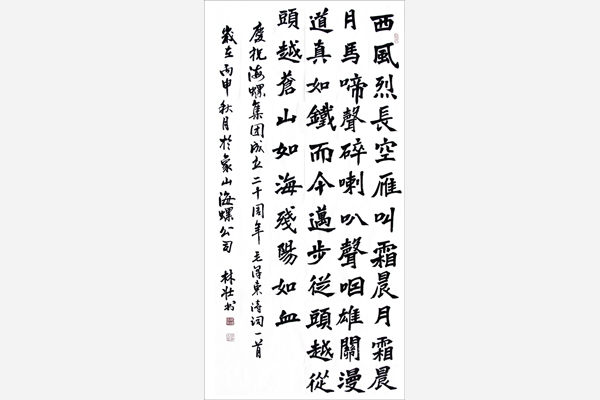 西風烈長空雁叫霜晨月霜晨
月馬啼聲碎喇叭聲咽雄關漫
道真如鐵而今邁步從頭越從
頭越蒼山如海殘陽如血
慶祝海螺集团成立二十周年毛澤東詩词一首
歲在丙申秋月於象山海螺公司 林壮书